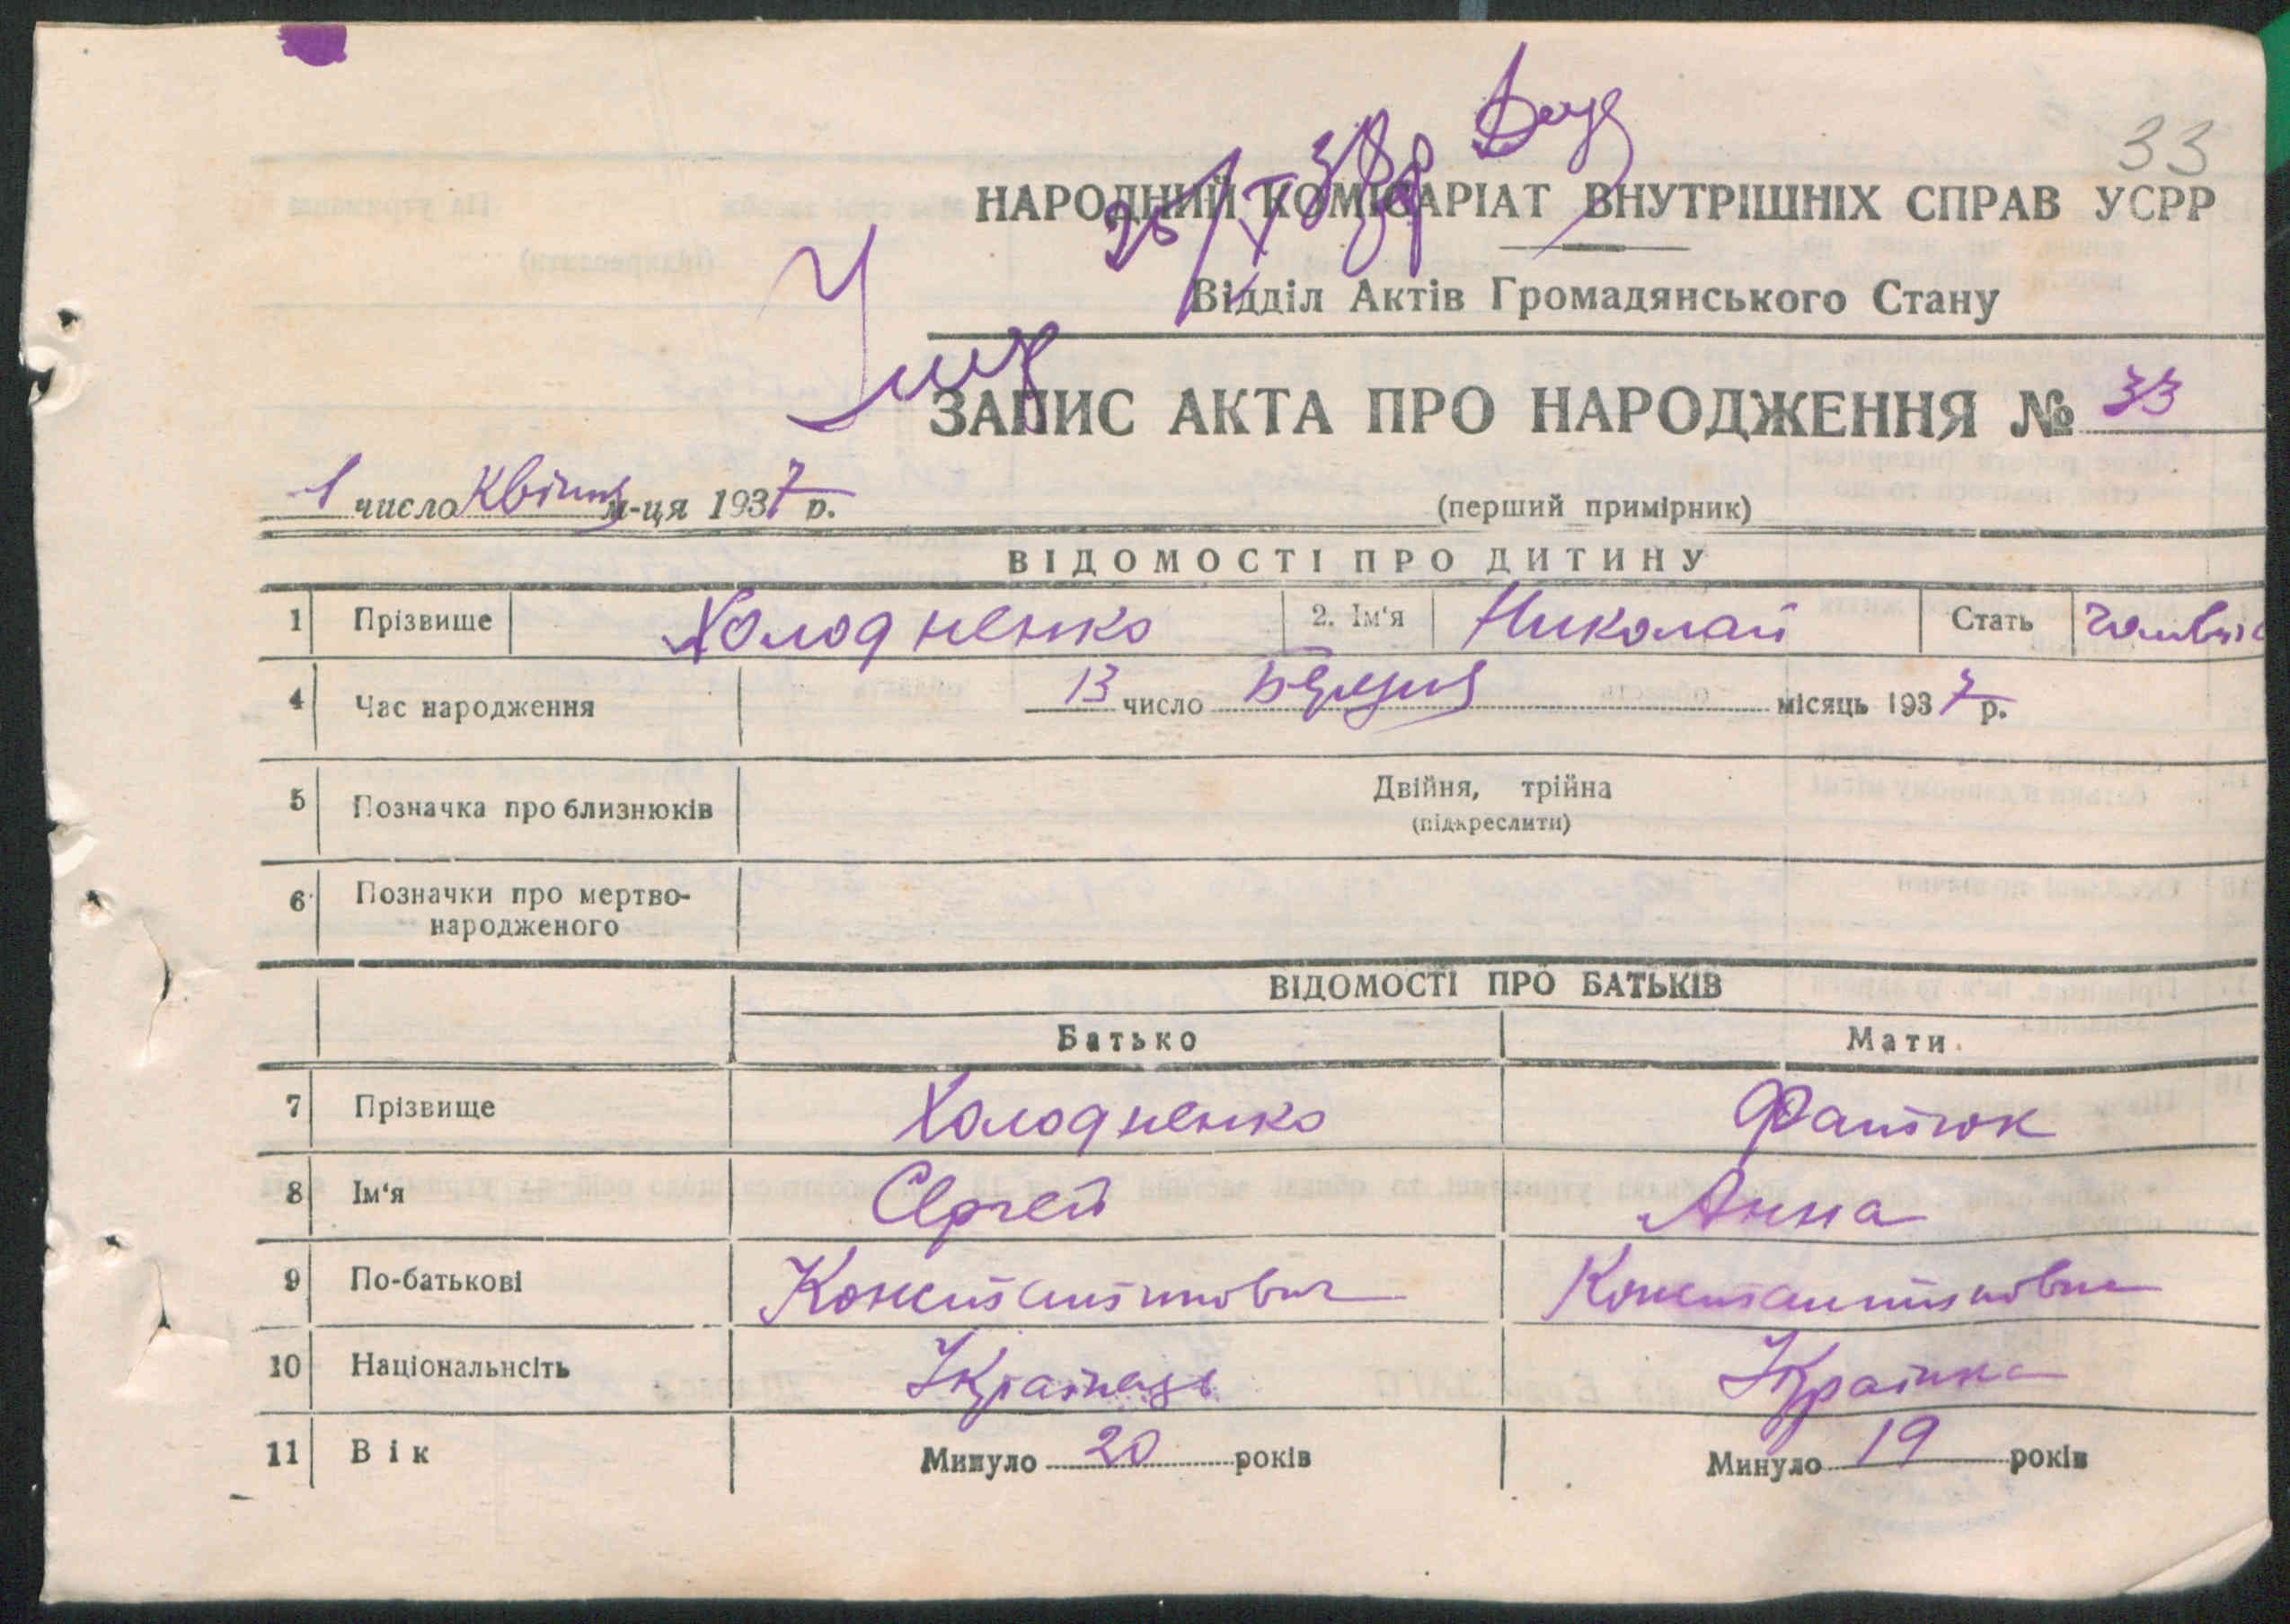 33
НАРОДНИЙ КОМІСАРІАТ ВНУТРІШНІХ СПРАВ УСРР
Відділ Актів Громадянського Стану
ЗАПИС АКТА ПРО НАРОДЖЕННЯ № 33
1 число Квітня м-ця 1937 р.
(перший примірник)
ВІДОМОСТІ ПРО ДИТИНУ
1 Прізвище Холодненко 2. Ім'я Николай Стать
4 Час народження 13 число місяць 1937 р.
5 Позначка про близнюків Двійня, трійна
(підкреслити)
6 Позначки про мертво-
народженого
ВІДОМОСТІ ПРО БАТЬКІВ
Батько Мати
7 Прізвище Холодненко
8 Ім'я Сергей Анна
9 По-батькові Константинович Константиновна
10 Національнсіть Українець Українка
11 Вік Минуло 20 років Минуло 19 років